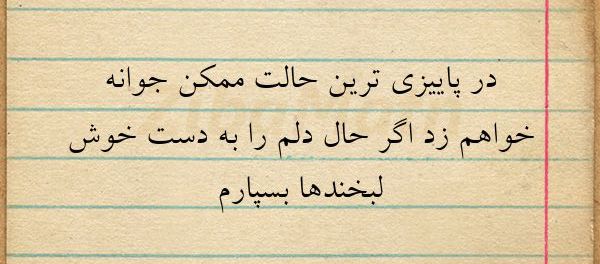 در پاییزی ترین حالت ممکن جوانه
خواهم زد اگر حال دلم را به دست خوش
لبخندها بسپارم